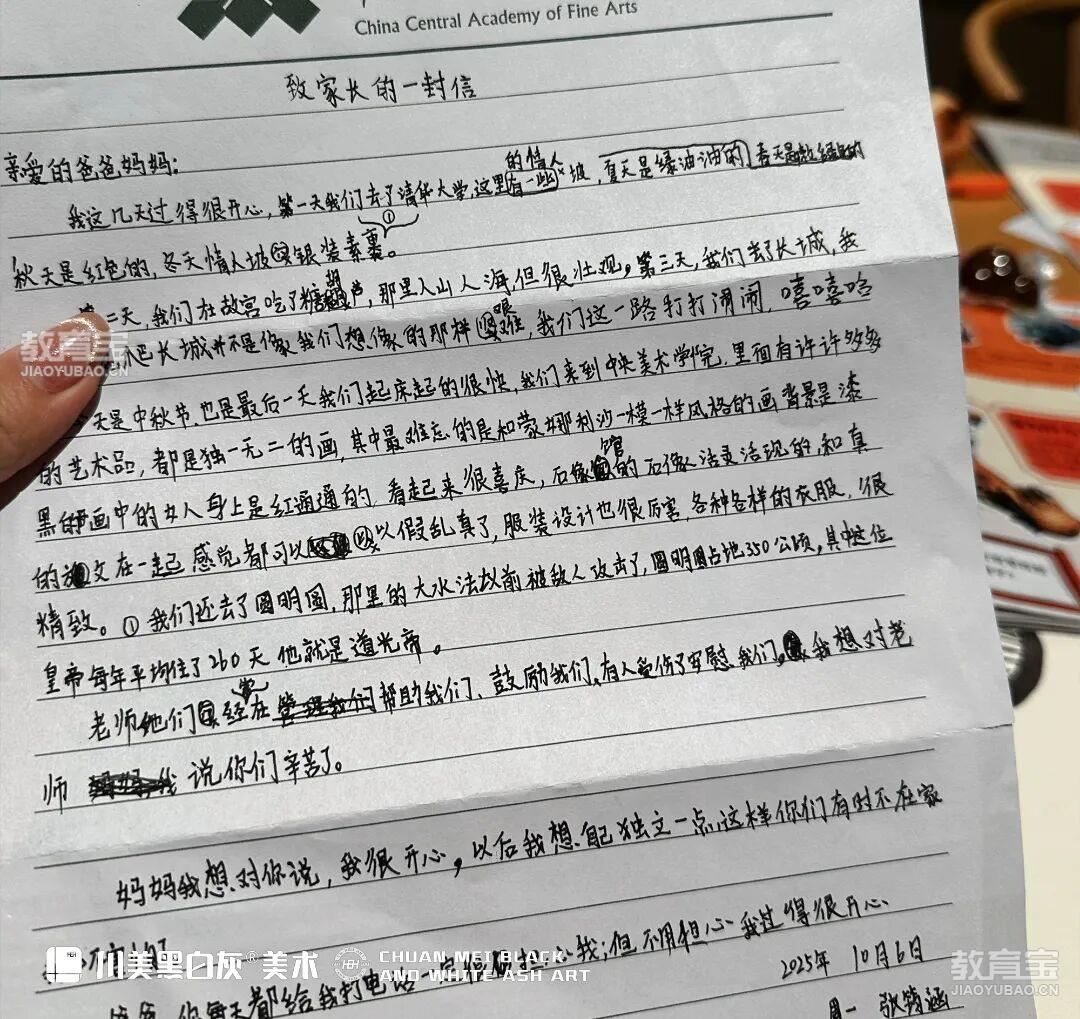 China Central Academy of Fine Arts
致家长的一封信
亲爱的爸爸妈妈:
的情人
我这几天过得很开心,第一天我们去了清华大学,这里有一些坡,夏天是绿油油的
①
秋天是红色的,冬天情人坡银装素裹。
二天,我们在故宫吃了糖葫芦,那里人山人海,但很壮观。第三天,我们去了长城,我
巴长城并不是像我们想像的那样艰难,我们这一路打打闹闹,嘻嘻哈
天是中秋节,也是最后一天我们起床起的很快,我们来到中央美术学院,里面有许许多多
的艺术品,都是独一无二的画,其中最难忘的是和蒙娜利沙一模一样风格的画背景是漆
黑的画中的女人身上是红通通的,看起来很喜庆,石像馆的石像活灵活现的,和真
的放在一起,感觉都可以以假乱真了,服装设计也很厉害,各种各样的衣服,很
精致。①我们还去了圆明园,那里的大水法以前被敌人攻击了,圆明园占地350公顷,其中这位
皇帝每年平均住了260天他就是道光帝。
老师他们经常在帮助我们、鼓励我们,有人受伤了安慰我们。我想对老
师 说你们辛苦了。
妈妈我想对你说,我很开心,以后我想自己独立一点这样你们有时不在家
你每天都给我打电话 心我;但不用担心 我过得很开心
2025年 10月6日
周一 张
川美黑白灰® 美术
CHUAN MEI BLACK
AND WHITE ASH ART
教育宝
JIAOYUBAO.CN
教育宝
JIAOYUBAO.CN